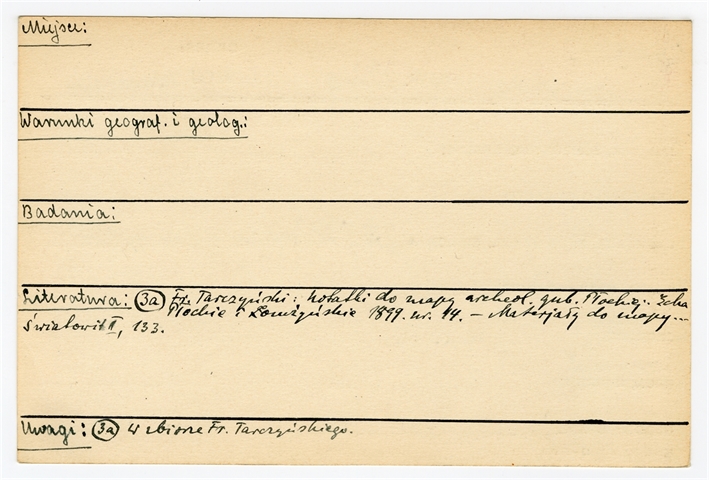 Miejsce:
Warunki geograf. i geolog.:
Badania:
Literatura: (3a) Fr. Tarczyński: Notatki do mapy archeol. gub. Płockiej. Echa
Płockie i Łomżyńskie 1899. nr. 44. – Materjały do mapy...
Światowit II, 133.
Uwagi: (3a) W zbiorze Fr. Tarczyńskiego.